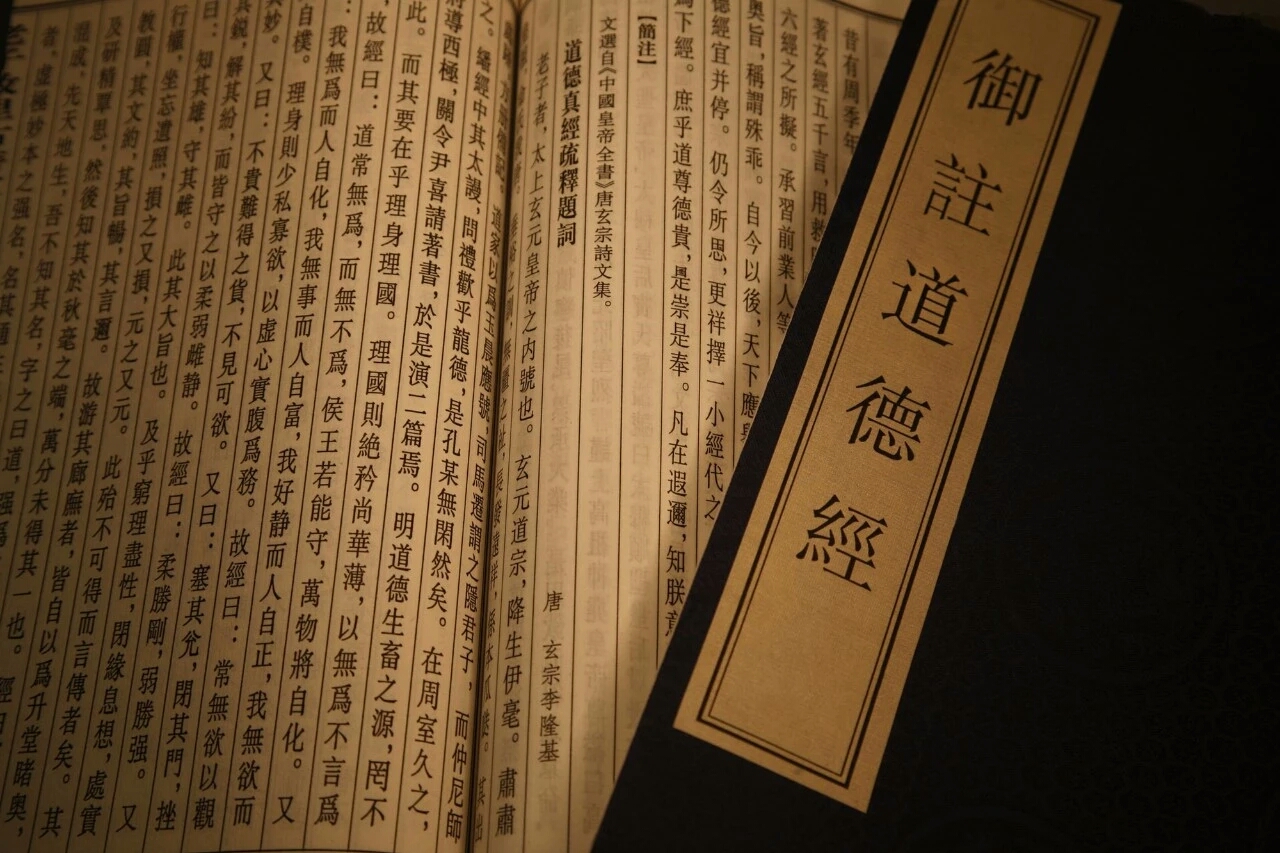 御註道德經
昔有周季年
著玄經五千言，用救
六經之所擬。承習前業人等
奧旨，稱謂殊乖。自今以後，天下應
德經宜并停。仍令所思，更祥擇一小經代之
爲下經。庶乎道尊德貴，是崇是奉。凡在遐邇，知朕意
【簡注】
文選自《中國皇帝全書》唐玄宗詩文集。
道德真經疏釋題詞
唐 玄宗李隆基
老子者，太上玄元皇帝之内號也。玄元道宗，降生伊毫。肅肅
道家以爲玉晨應號，司馬遷謂之隱君子，而仲尼師
之。繙經中其太謾，問禮歡乎龍德，是孔某無閑然矣。在周室久之，
將導西極，關令尹喜請著書，於是演二篇焉。明道德生畜之源，罔不
此。而其要在乎理身理國。理國則絶矜尚華薄，以無爲不言爲
故經曰：道常無爲，而無不爲，侯王若能守，萬物將自化。又
：我無爲而人自化，我無事而人自富，我好静而人自正，我無欲而
自樸。理身則少私寡欲，以虚心實腹爲務。故經曰：常無欲以觀
其妙。又曰：不貴難得之貨，不見可欲。又曰：塞其兑，閉其門，挫
其鋭，解其紛，而皆守之以柔弱雌静。故經曰：柔勝剛，弱勝强。又
曰：知其雄，守其雌。此其大旨也。及乎窮理盡性，閉緣息想，處實
行權，坐忘遺照，損之又損，元之又元。此殆不可得而言傳者矣。其
教圓，其文約，其旨暢，其言邇。故游其廊廡者，皆自以爲升堂睹奥，
及研精單思，然後知其於秋毫之端，萬分未得其一也。
混成，先天地生，吾不知其名，字之曰道，强爲
者，虚極妙本之强名，名其通